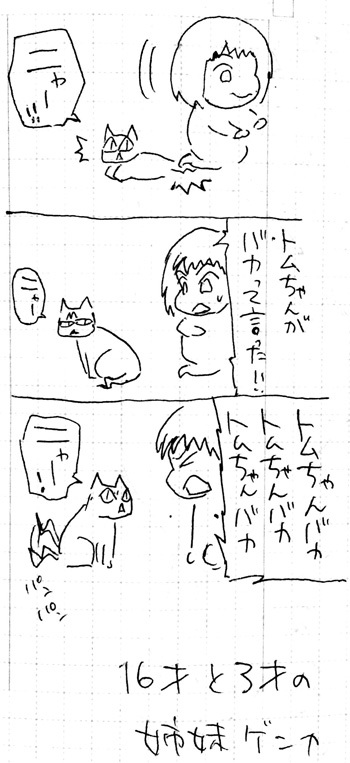 ニャー!!
トムちゃんが
バカって言った!!
ニャー
トムちゃんバカ
トムちゃんバカ
トムちゃんバカ
ニャー!
パン
パン
16才と3才の
姉妹ゲンカ